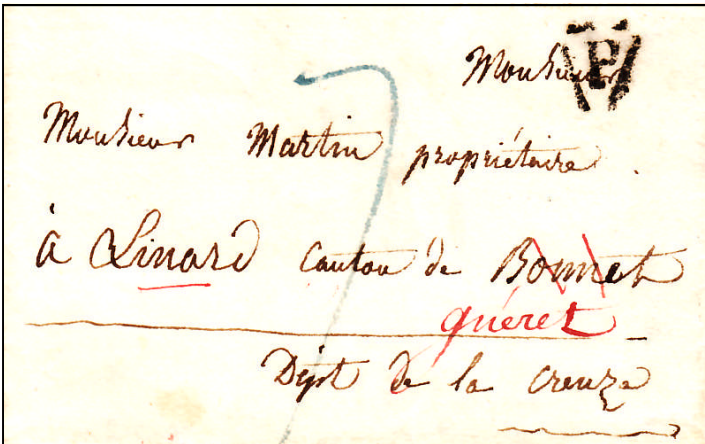 P
Monsieur
Monsieur Martin propriétaire.
à Linard Canton de Bonnet
guéret
Dépt de la Creuze
7